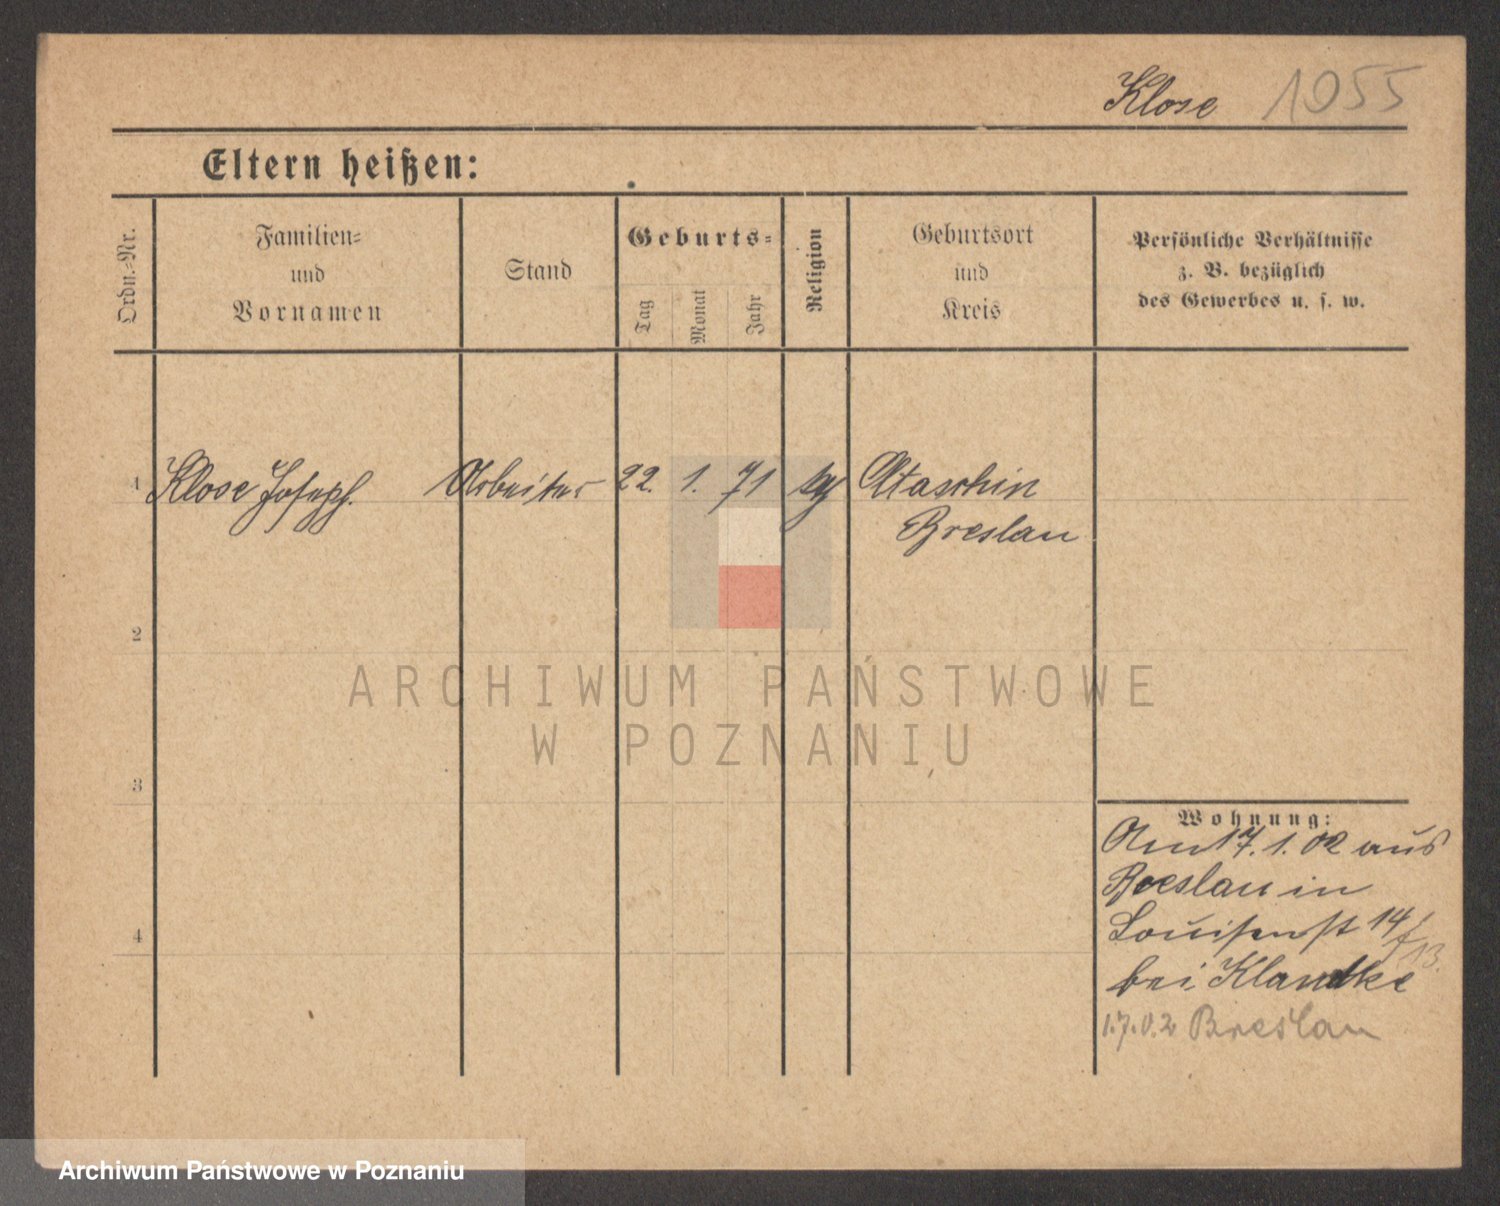 Klose 1055
Eltern heißen:
Ordn.=Nr.
Familien=
und
Vornamen
Stand
Geburts=
Tag
Monat
Jahr
Religion
Geburtsort
und
Kreis
Persönliche Verhältnisse
z. B. bezüglich
des Gewerbes u. s. w.
1 Klose Joseph. Arbeiter 22. 1. 71 kg Altaschin
Breslau
2
3
4
Wohnung:
Am 17. 1. 02 aus
Breslau in
Louisenst 14/
13.
bei Klandke
1.7.02 Breslau
ARCHIWUM PAŃSTWOWE
W POZNANIU
Archiwum Państwowe w Poznaniu